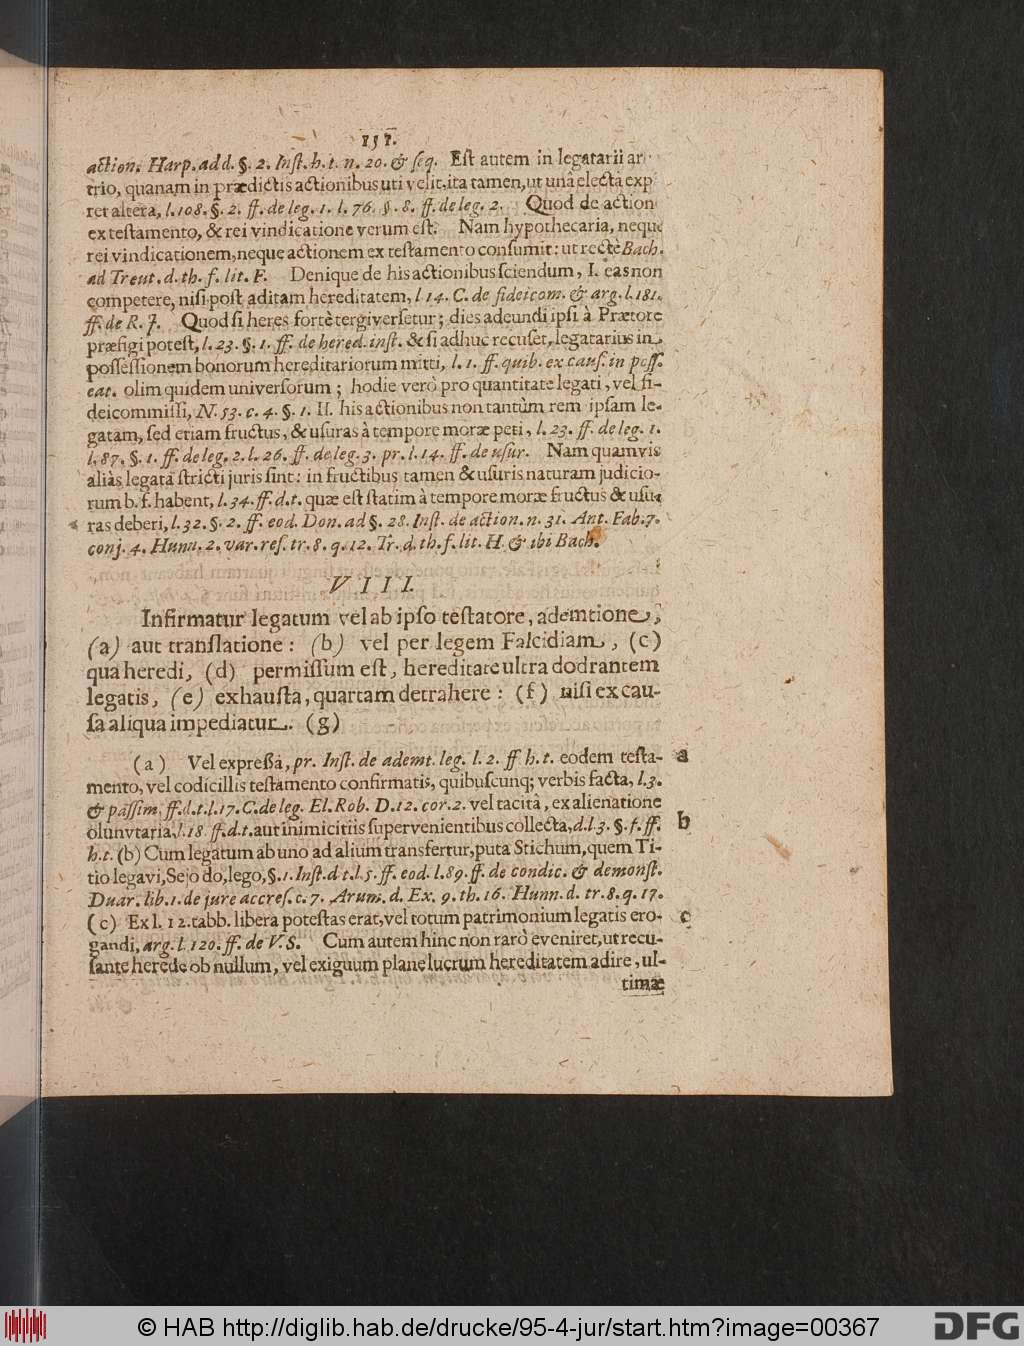 151.
action. Harp. add. §. 2. Inst. h. t. n. 20. & seq. Est autem in legatarii ar
trio, quanam in prædictis actionibus uti velit, ita tamen, ut unâ electâ exp
ret altera, l. 108. §. 2. ff. de leg. 1. l. 76. §. 8. ff. de leg. 2. Quod de action
ex testamento, & rei vindicatione verum est. Nam hypothecaria, neque
rei vindicationem, neque actionem ex testamento consumit: ut rectè Bach.
ad Treut. d. th. f. lit. F. Denique de his actionibus sciendum, I. eas non
competere, nisi post aditam hereditatem, l 14. C. de fideicom. & arg. l. 181.
ff. de R. J. Quod si heres fortè tergiversetur; dies adeundi ipsi à Prætore
præfigi potest, l. 23. §. 1. ff. de hered. inst. & si adhuc recuset, legatarius in
possessionem bonorum hereditariorum mitti, l. 1. ff. quib. ex caus. in poss.
eat. olim quidem universorum; hodie verò pro quantitate legati, vel fi-
deicommissi, N. 53. c. 4. §. 1. II. his actionibus non tantùm rem ipsam le-
gatam, sed etiam fructus, & usuras à tempore moræ peti, l. 23. ff. de leg. 1.
l. 87. §. 1. ff. de leg. 2. l. 26. ff. de leg. 3. pr. l. 14. ff. de usur. Nam quamvis
aliàs legata stricti juris sint: in fructibus tamen & usuris naturam judicio-
rum b. f. habent, l. 34. ff. d. t. quæ est statim à tempore moræ fructus & usu-
ras deberi, l. 32. §. 2. ff. eod. Don. ad §. 28. Inst. de action. n. 31. Ant. Fab. 7.
conj. 4. Hunn. 2. var. res. tr. 8. q. 12. Tr. d. th. f. lit. H. & ibi Bach.
VIII.
Infirmatur legatum vel ab ipso testatore, ademtione,
(a) aut translatione: (b) vel per legem Falcidiam, (c)
qua heredi, (d) permissum est, hereditate ultra dodrantem
legatis, (e) exhausta, quartam detrahere: (f) nisi ex cau-
sa aliqua impediatur. (g)
(a) Vel expreßâ, pr. Inst. de ademt. leg. l. 2. ff h. t. eodem testa- a
mento, vel codicillis testamento confirmatis, quibuscunq; verbis facta, l. 3.
& passim. ff. d. t. l. 17. C. de leg. El. Rob. D. 12. cor. 2. vel tacitâ, ex alienatione
olunvtaria, l. 18 ff. d. t. aut inimicitiis supervenientibus collecta, d. l 3. §. f. ff. b
h. t. (b) Cum legatum ab uno ad alium transfertur, puta Stichum, quem Ti-
tio legavi, Sejo do, lego, §. 1. Inst. d t. l. 5. ff. eod. l. 89. ff. de condic. & demonst.
Duar. lib. 1. de jure accres. c. 7. Arum. d. Ex. 9. th. 16. Hunn. d. tr. 8. q. 17.
(c) Ex l. 12. tabb. libera potestas erat, vel totum patrimonium legatis ero- c
gandi, arg. l. 120. ff. de V. S. Cum autem hinc non rarò eveniret, ut recu-
sante herede ob nullum, vel exiguum plane lucrum hereditatem adire, ul-
timæ
© HAB http://diglib.hab.de/drucke/95-4-jur/start.htm?image=00367
DFG